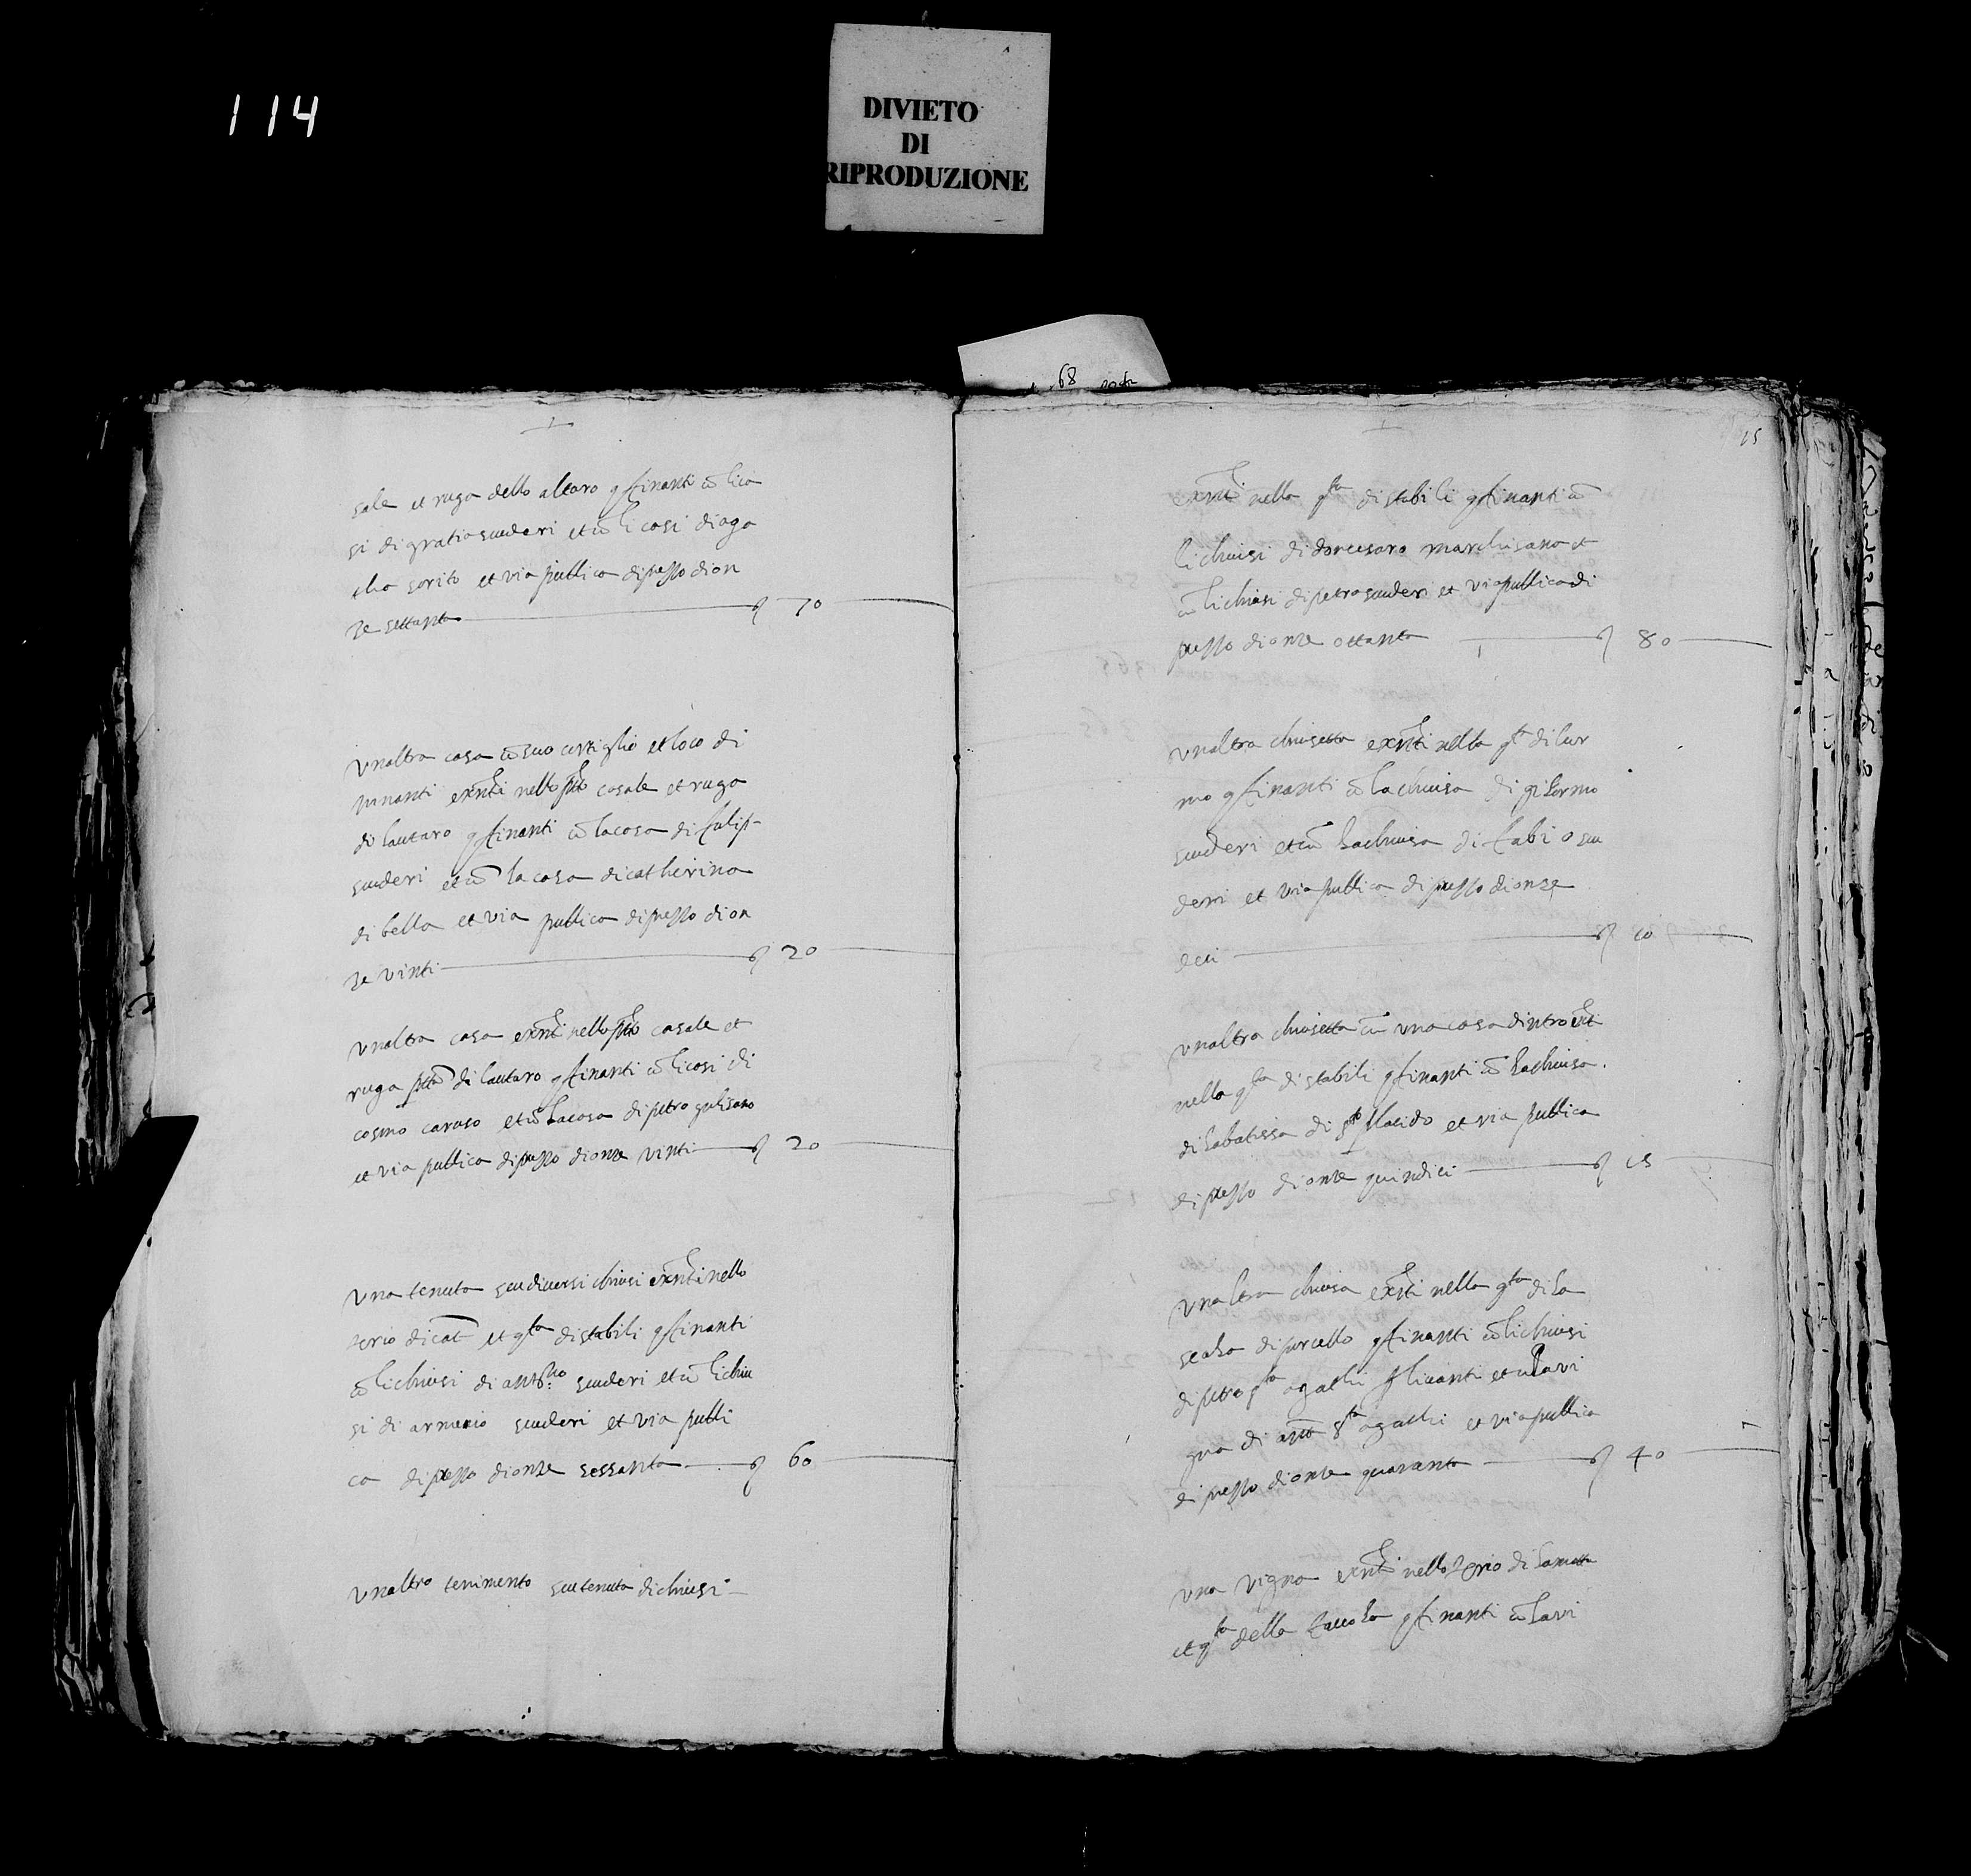 114
DIVIETO
DI
RIPRODUZIONE
68
sale et ruga dello altaro gfinanti cō li ca
si di gratia scuderi et cū li casi di aga
tha sorito et via publica di prezzo di on
ze settanta 70
unaltra casa cō suo cortiglio et loco di
innanti exnti nello pto casale et ruga
di lautaro gfinanti cō la casa di
scuderi et cū la casa di catherina
di bella et via publica di prezzo di on
ze vinti 20
unaltra casa exnti nello pto casale et
ruga ptta di lautaro gfinanti cō li casi di
cosmo caruso et cō la casa di petro gulisano
et via publica di prezzo di onze vinti 20
una tenuta seu diversi chiusi exnti nello
terio di cat et gta di stabili gfinanti
cō li chiusi di scuderi et cū li chiu
si di scuderi et via publi
ca di prezzo di onze sessanta 60
unaltro tenimento seu tenuta di chiusi
15
exnti nella gta di stabili gfinanti cō
li chiusi di don cesaro marchisana et
cū li chiusi di petro scuderi et via publica di
prezzo di onze ottanta 80
unaltra chiusetta exnti nella gta di lur
mo gfinanti cō la chiusa di gilormo
scuderi et cū la chiusa di fabio scu
deri et via publica di prezzo di onze
deci 10
unaltra chiusetta cū una casa dintro ext
nella gta di stabili gfinanti cō la chiusa
di labatissa di sto placido et via publica
di prezzo di onze quindici 15
unaltra chiusa exnti nella gta di la
scala di purcello gfinanti cō li chiusi
di petro sta agathi et cū la vi
gna di anto sta agathi et via publica
di prezzo di onze quaranta 40
una vigna exnti nello terrio di la motta
et gta della gfinanti cū la vi